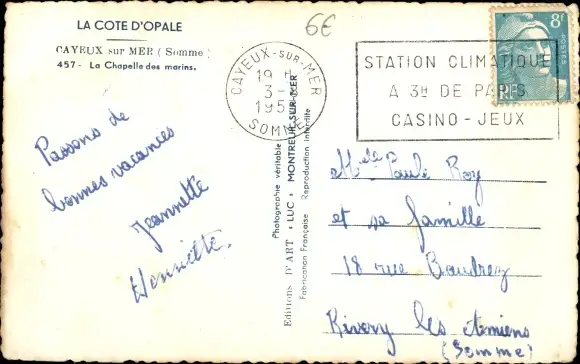 LA COTE D'OPALE
CAYEUX sur MER ( Somme )
457 - La Chapelle des marins.
6€
CAYEUX-SUR-MER
19
3-
195
SOMME
STATION CLIMATIQUE
A 3H DE PARIS
CASINO - JEUX
8F
POSTES
RF
Passons de
bonnes vacances
Jeannette
Henriette
Photographie véritable
Editions D'ART "LUC" MONTREUIL-SUR-MER
Fabrication Française Reproduction interdite
Paule Roy
et sa famille
18 rue Baudrez
Rivery les Amiens
(Somme)